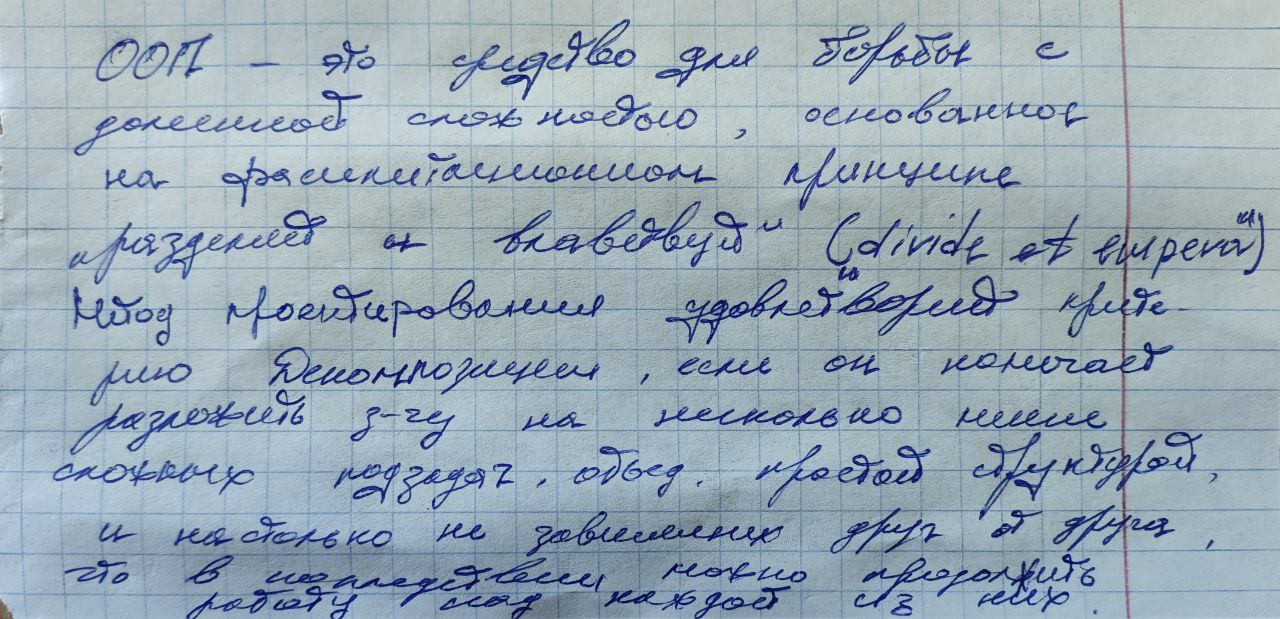 ООП – это средство для борьбы с
сложностью, основанное
на принципе
„разделяй и властвуй" (divide et empera)
Метод проектирования удовлетворит крите-
рию Декомпозиции, если он помогает
разложить з-чу на несколько менее
сложных подзадач, объед. простой структурой,
и настолько не зависимых друг от друга,
что в последствии можно продолжить
работу над каждой из них.